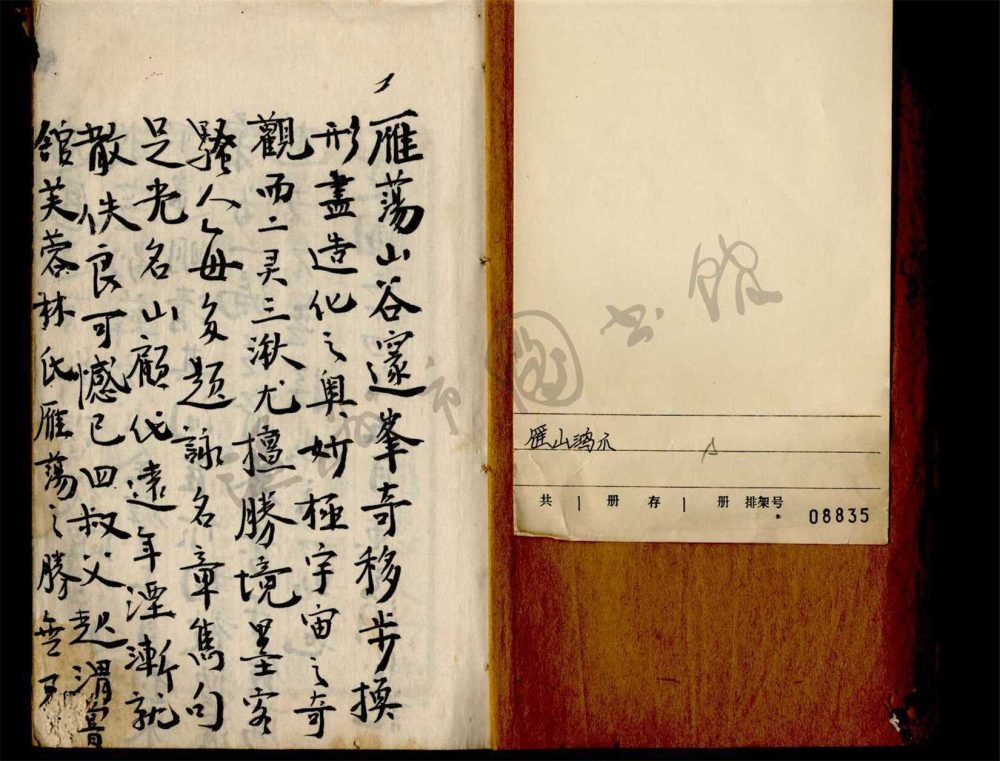 雁蕩山谷邃峯奇移步換
形盡造化之奧妙極宇宙之奇
觀而二灵三湫尤擅勝境墨客
騷人每多題詠名章雋句
足光名山顧代遠年湮漸就
散佚良可憾已四叔父起渭嘗
館芙蓉林氏雁蕩之勝無不
市圖书館
雁山鴻爪
共 1 册 存 1 册 排架号
08835